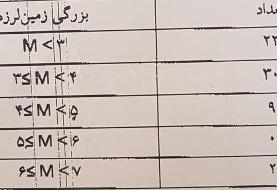 بزرگی زمین‌لرزه
M < ۳
۳ ≤ M < ۴
۴ ≤ M < ۵
۹
۵ ≤ M < ۶
۰
۶ ≤ M < ۷
۲